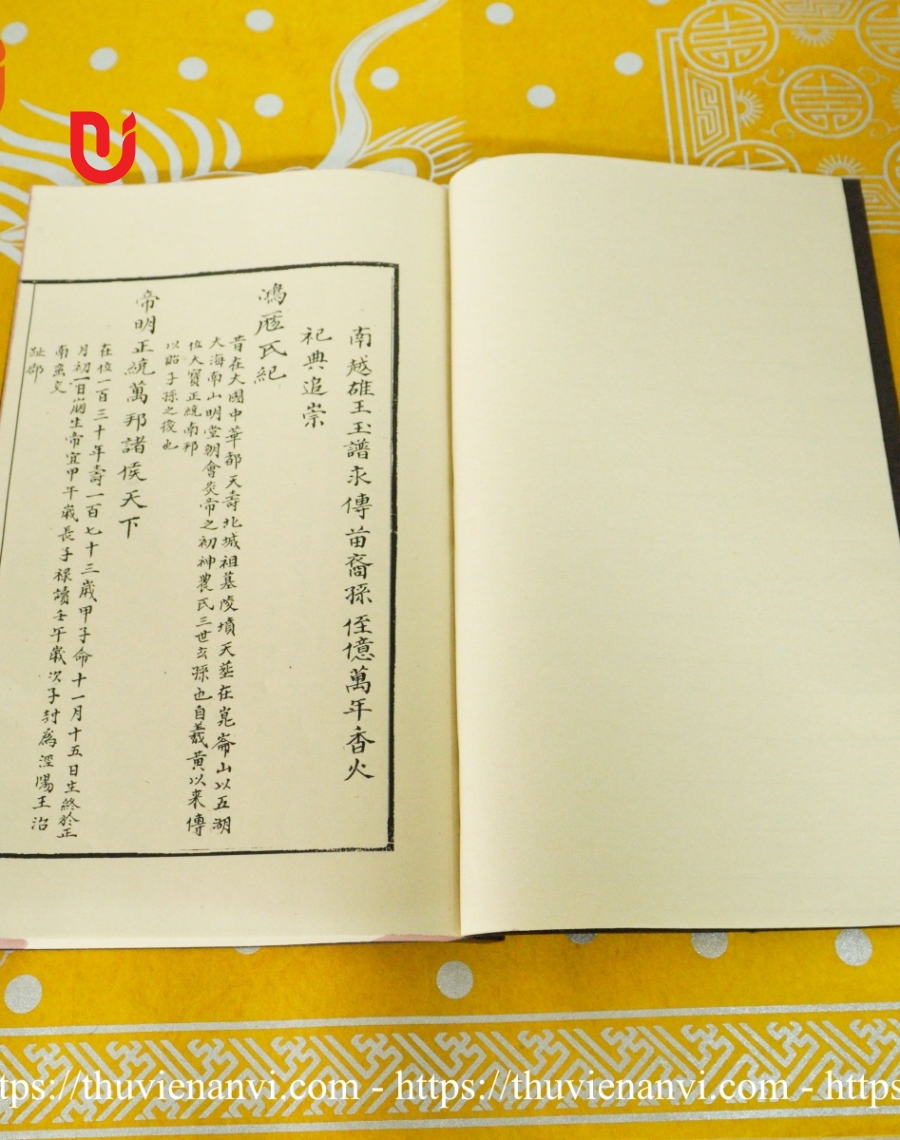 南越雄王玉譜永傳苗裔孫侄億萬年香火
祀典追崇
鴻厖氏紀
昔在大國中華都天壽北城祖墓陵墳天塟在崑崙山以五湖
大海南山明堂朝會炎帝之初神農氏三世玄孫也自羲黃以来傳
位大寶正統南邦
以昭子孫之後也
帝明正統萬邦諸侯天下
在位一百三十年壽一百七十三歲甲子命十一月十五日生終於正
月初一日崩生帝宜甲午歲長子禄讀壬午歲次子封為涇陽王治
南蛮交
趾郡
https://thuvienanvi.com - https://thuvienanvi.com - https